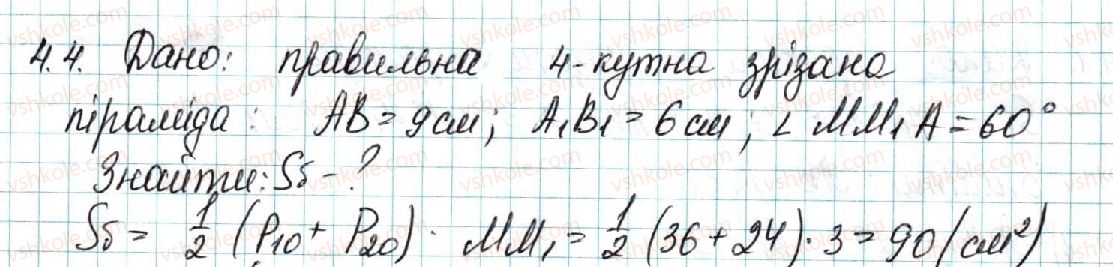 4.4. Дано: правильна 4-кутна зрізана
піраміда: AB = 9 см; A₁B₁ = 6 см; ∠ MM₁A = 60°
Знайти: Sб - ?
Sб = 1/2 (P₁₀ + P₂₀) · MM₁ = 1/2 (36 + 24) · 3 = 90 (см²)